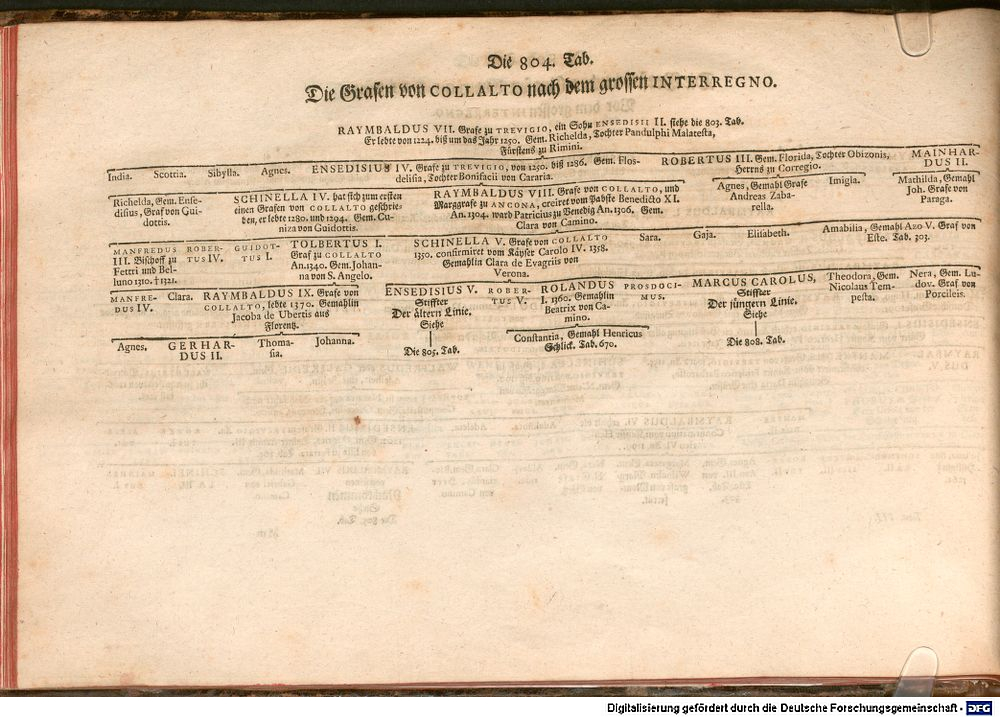 Die 804. Tab.
Die Grafen von COLLALTO nach dem grossen INTERREGNO.
RAYMBALDUS VII. Grafe zu TREVIGIO, ein Sohn ENSEDISII II. siehe die 803. Tab.
Er lebte von 1224. biß um das Jahr 1250. Gem. Richelda, Tochter Pandulphi Malatesta,
Fürstens zu Rimini.
India. Scottia. Sibylla. Agnes.
ENSEDISIUS IV. Grafe zu TREVIGIO, von 1250. biß 1286. Gem. Flos-
delisia, Tochter Bonifacii von Cararia.
ROBERTUS III. Gem. Florida, Tochter Obizonis,
Herrns zu Corregio.
MAINHAR-
DUS II.
Richelda, Gem. Ense-
disius, Graf von Gui-
dottis.
SCHINELLA IV. hat sich zum ersten
einen Grafen von COLLALTO geschrie-
ben, er lebte 1280. und 1294. Gem. Cu-
niza von Guidottis.
RAYMBALDUS VIII. Grafe von COLLALTO, und
Marggrafe zu ANCONA, creiret vom Pabste Benedicto XI.
An. 1304. ward Patricius zu Venedig An. 1306. Gem.
Clara von Camino.
Agnes, Gemahl Grafe
Andreas Zaba-
rella.
Imigla.
Mathilda, Gemahl
Joh. Grafe von
Paraga.
MANFREDUS
III. Bischoff zu
Feltri und Bel-
luno 1310. † 1321.
ROBER-
TUS IV.
GUIDOT-
TUS I.
TOLBERTUS I.
Graf zu COLLALTO
An. 1340. Gem. Johan-
na von S. Angelo.
SCHINELLA V. Grafe von COLLALTO
1350. confirmiret vom Käyser Carolo IV. 1358.
Gemahlin Clara de Evagriis von
Verona.
Sara. Gaja. Elisabeth.
Amabilia, Gemahl Azo V. Graf von
Este. Tab. 303.
MANFRE-
DUS IV.
Clara.
RAYMBALDUS IX. Grafe von
COLLALTO, lebte 1370. Gemahlin
Jacoba de Ubertis aus
Florentz.
ENSEDISIUS V.
Stiffter
Der ältern Linie.
Siehe
Die 805. Tab.
ROBER-
TUS V.
ROLANDUS
I. 1360. Gemahlin
Beatrix von Ca-
mino.
PROSDOCI-
MUS.
MARCUS CAROLUS,
Stiffter
Der jüngern Linie.
Siehe
Die 808. Tab.
Theodora, Gem.
Nicolaus Tem-
pesta.
Nera, Gem. Lu-
dov. Graf von
Porcileis.
Agnes. GERHAR-
DUS II.
Thoma-
sia.
Johanna.
Constantia, Gemahl Henricus
Schlick. Tab. 670.
Digitalisierung gefördert durch die Deutsche Forschungsgemeinschaft - DFG